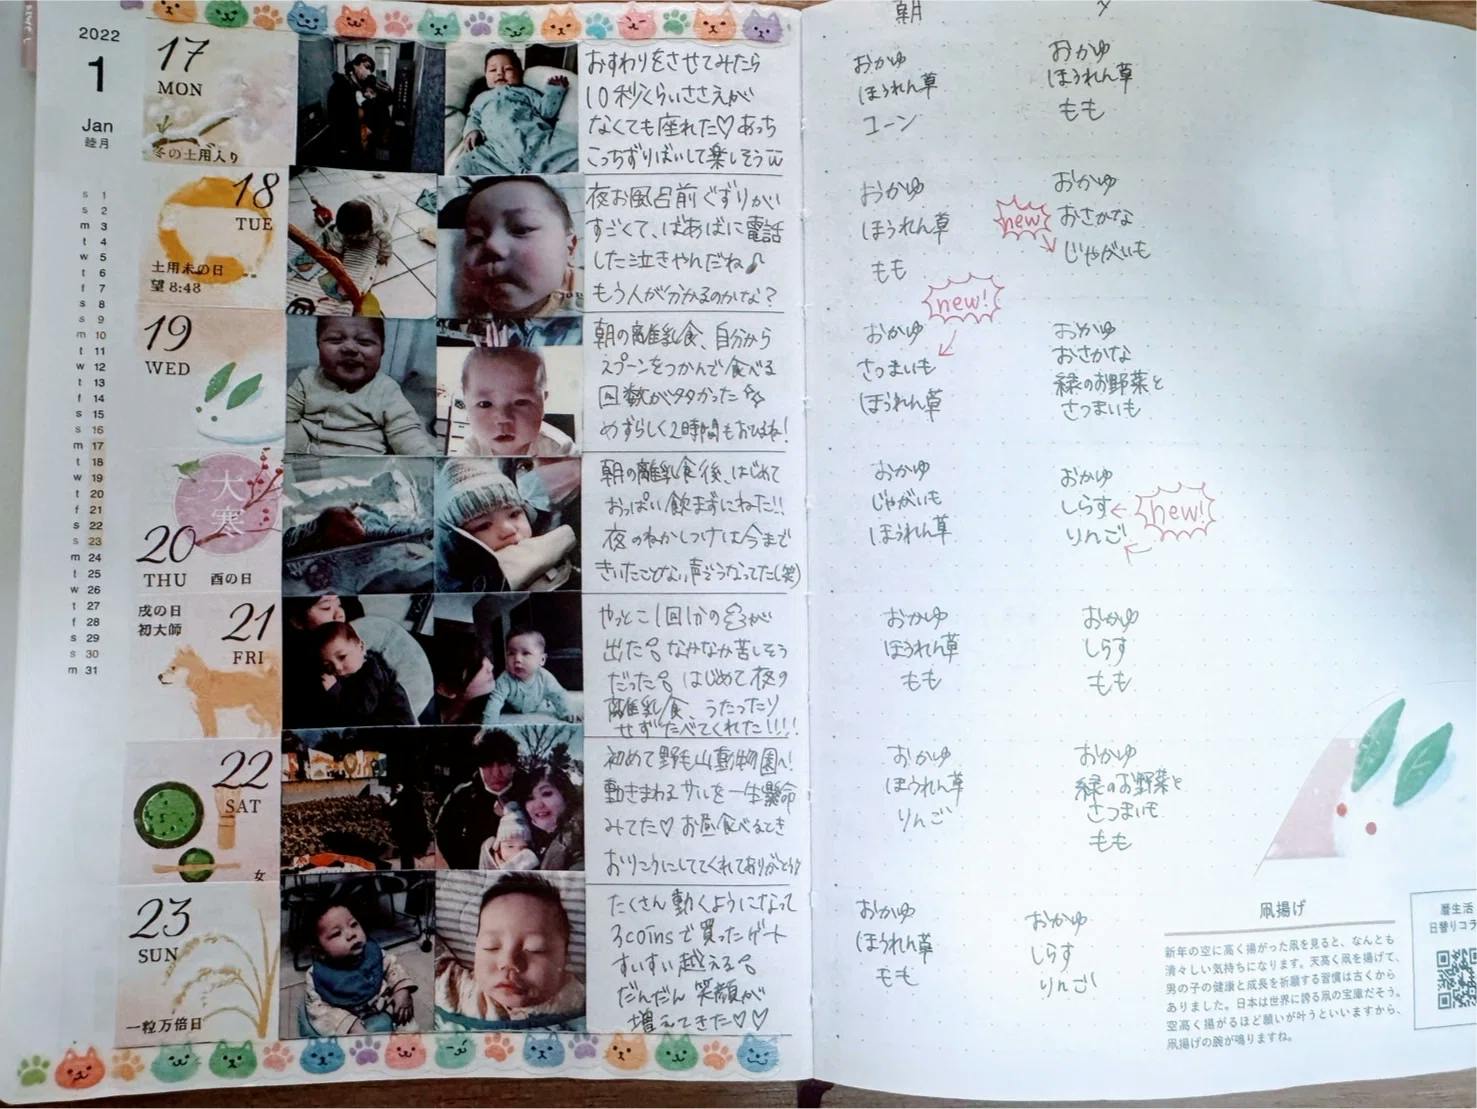 2022
1
Jan
睦月
s 1
s 2
m 3
t 4
w 5
t 6
f 7
s 8
s 9
m 10
t 11
w 12
t 13
f 14
s 15
s 16
m 17
t 18
w 19
t 20
f 21
s 22
s 23
m 24
t 25
w 26
t 27
f 28
s 29
s 30
m 31
17
MON
冬の土用入り
おすわりをさせてみたら
10秒くらいささえが
なくても座れた♡あっち
こっちずりばいして楽しそう
18
TUE
土用未の日
望 8:48
夜お風呂前ぐずりがい
すごくて、ばあばに電話
したら泣きやんだね♪
もう人が分かるのかな?
19
WED
朝の離乳食、自分から
スプーンをつかんで食べる
回数が多かった☆
めずらしく2時間もおひるね!
大寒
20
THU
酉の日
朝の離乳食後、はじめて
おっぱい飲まずにねた!!
夜のねかしつけは今まで
きいたことない声でうなってた(笑)
戌の日
初大師
21
FRI
やっとこ1回かの
出た なかなか苦しそう
だった はじめて夜の
離乳食、うたったり
せずたべてくれた!!!!
22
SAT
女
初めて野毛山動物園へ!
動きまわるサルを一生懸命
みてた♡お昼食べるとき
おりこうにしててくれてありがとう
23
SUN
一粒万倍日
たくさん動くようになって
3coinsで買ったゲート
すいすい越える
だんだん笑顔が
増えてきた♡♡
朝
夕
おかゆ
ほうれん草
コーン
おかゆ
ほうれん草
もも
おかゆ
ほうれん草
もも
new
おかゆ
おさかな
じゃがいも
new!
おかゆ
さつまいも
ほうれん草
おかゆ
おさかな
緑のお野菜と
さつまいも
おかゆ
じゃがいも
ほうれん草
おかゆ
しらす
りんご
new!
おかゆ
ほうれん草
もも
おかゆ
しらす
もも
おかゆ
ほうれん草
りんご
おかゆ
緑のお野菜と
さつまいも
もも
おかゆ
ほうれん草
もも
おかゆ
しらす
りんご
凧揚げ
新年の空に高く揚がった凧を見ると、なんとも
清々しい気持ちになります。天高く凧を揚げて、
男の子の健康と成長を祈願する習慣は古くから
ありました。日本は世界に誇る凧の宝庫だそう。
空高く揚がるほど願いが叶うといいますから、
凧揚げの腕が鳴りますね。
暦生活
日替りコラ